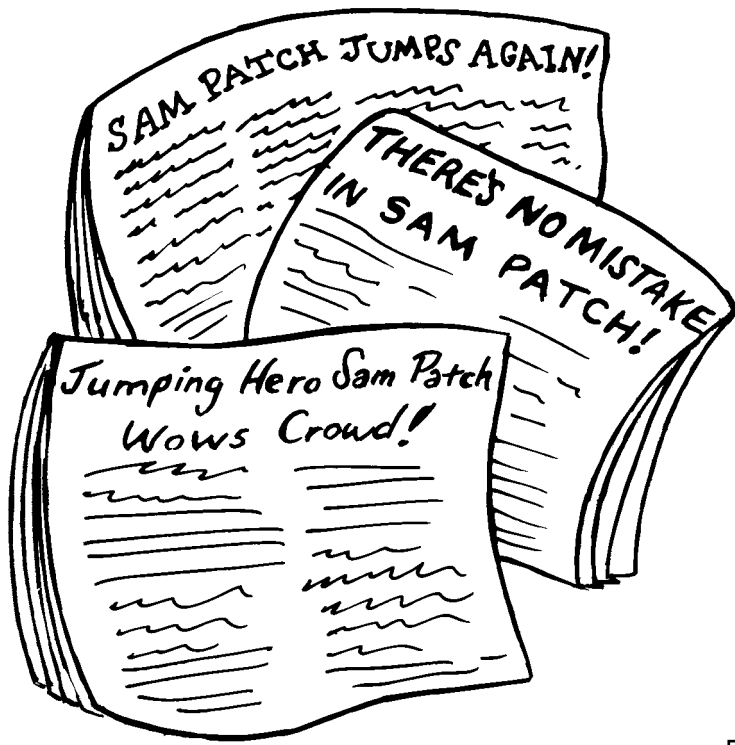 SAM PATCH JUMPS AGAIN!
THERE'S NO MISTAKE
IN SAM PATCH!
Jumping Hero Sam Patch
Wows Crowd!